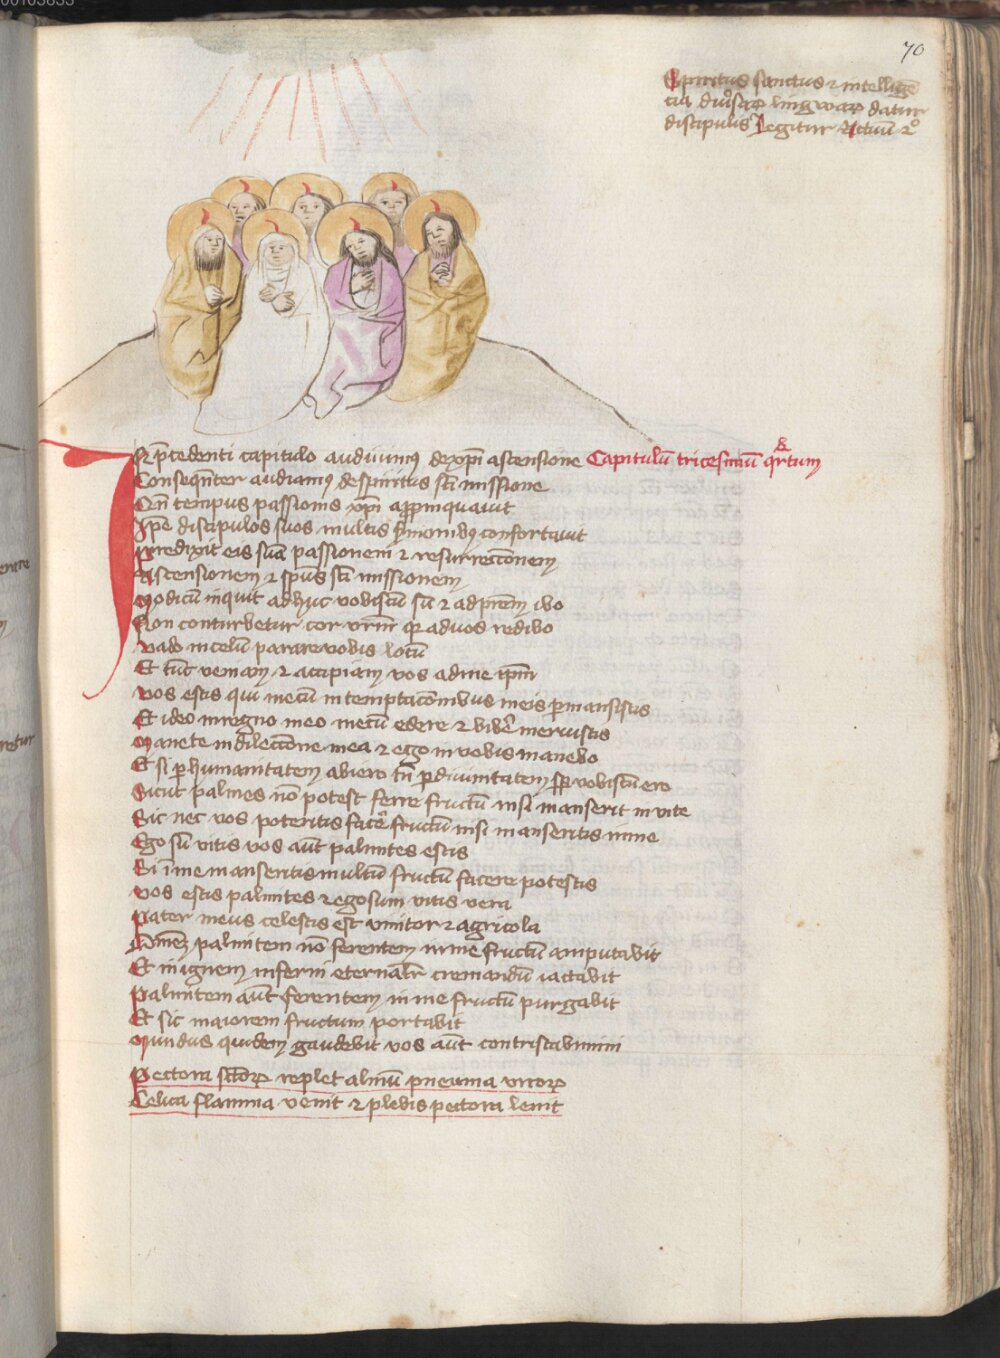 70
Spiritus sanctus ⁊ intellige͞
cia diu͛saꝝ lingwaꝝ datur
discipulis Legitur Actuu͞ 2°
IN p͞cedenti capitulo audiuimꝰ de xp͞i ascensione Capitulu͞ tricesimu͞ qrtum
Conseque͞ter audiamꝰ de spiritus sc͞i missione
Qn͞ tempus passionis xp͞i appinquauit
Ipe͞ discipulos suos multis s͛monibꝰ confortauit
Predixit eis sua͞ passionem ⁊ resurrecc͞onem
Ascensionem ⁊ sp͞us sc͞i missionem
Modicu͞ inquit adhuc vobiscu͞ su͞ ⁊ ad pr͞em ibo
Non conturbetur cor vr͞m qr ad uos redibo
Vado in celu͞ parare vobis locu͞
Et tu͞c veniam ⁊ accipiam vos ad me ip͞m
Vos estis qui mecu͞ in temptac͞onibus meis p͛mansistis
Et ideo in regno meo mecu͞ edere ⁊ bib͛e meruistis
Manete in dilecc͞one mea ⁊ ego in vobis manebo
Et si ꝑ humanitatem abiero tn͞ ꝑ diuinitatem sꝑ vobiscu͞ ero
Sicut palmes no͞ potest ferre fructu͞ nisi manserit in vite
Sic nec vos poteritis fac͛e fructu͞ nisi manseritis in me
Ego su͞ vitis vos aut͞ palmites estis
Si i͞ me manseritis multu͞ fructu͞ facere potestis
Vos estis palmites ⁊ ego sum vitis vera
Pater meus celestis est vinitor ⁊ agricola
Omne͞ palmitem no͞ ferentem in me fructu͞ amputabit
Et in ignem inferni eternalr͛ cremandu͞ iactabit
Palmitem aut͞ ferentem in me fructu͞ purgabit
Et sic maiorem fructum portabit
Mundus quidem gaudebit vos aut͞ contristabimini
Pectora sc͞toꝝ replet almu͞ pneuma viroꝝ
Celica flamma venit ⁊ plebis pectora lenit